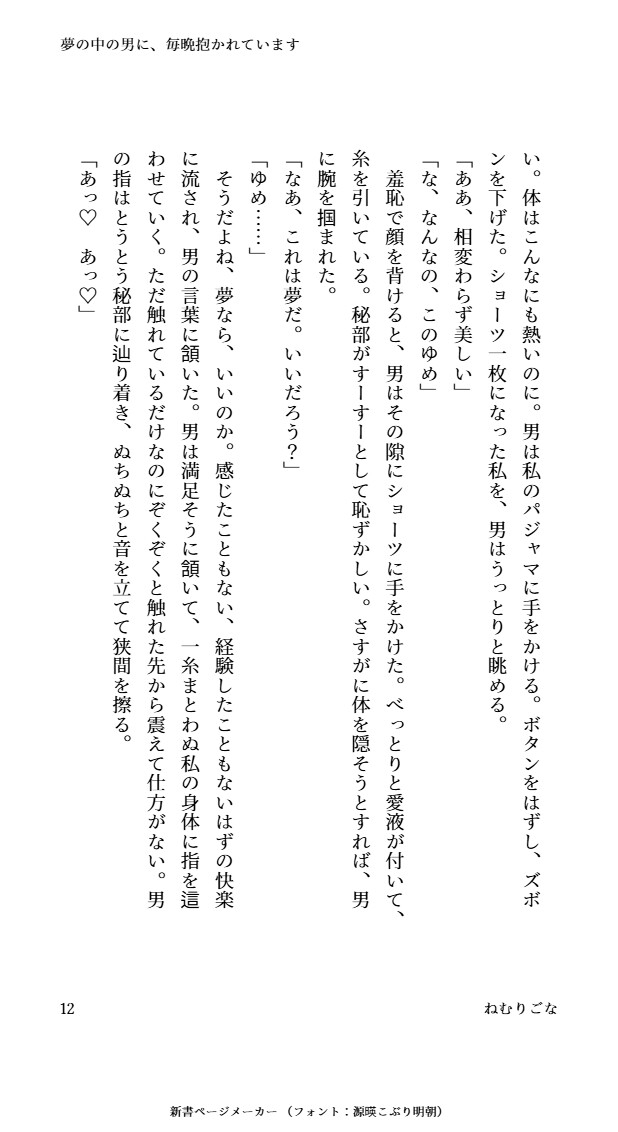 夢の中の男に、毎晩抱かれています
い。体はこんなにも熱いのに。男は私のパジャマに手をかける。ボタンをはずし、ズボ
ンを下げた。ショーツ一枚になった私を、男はうっとりと眺める。
「ああ、相変わらず美しい」
「な、なんなの、このゆめ」
　羞恥で顔を背けると、男はその隙にショーツに手をかけた。べっとりと愛液が付いて、
糸を引いている。秘部がすーすーとして恥ずかしい。さすがに体を隠そうとすれば、男
に腕を掴まれた。
「なあ、これは夢だ。いいだろう？」
「ゆめ……」
　そうだよね、夢なら、いいのか。感じたこともない、経験したこともないはずの快楽
に流され、男の言葉に頷いた。男は満足そうに頷いて、一糸まとわぬ私の身体に指を這
わせていく。ただ触れているだけなのにぞくぞくと触れた先から震えて仕方がない。男
の指はとうとう秘部に辿り着き、ぬちぬちと音を立てて狭間を擦る。
「あっ♡　あっ♡」
12
ねむりごな
新書ページメーカー（フォント：源暎こぶり明朝）